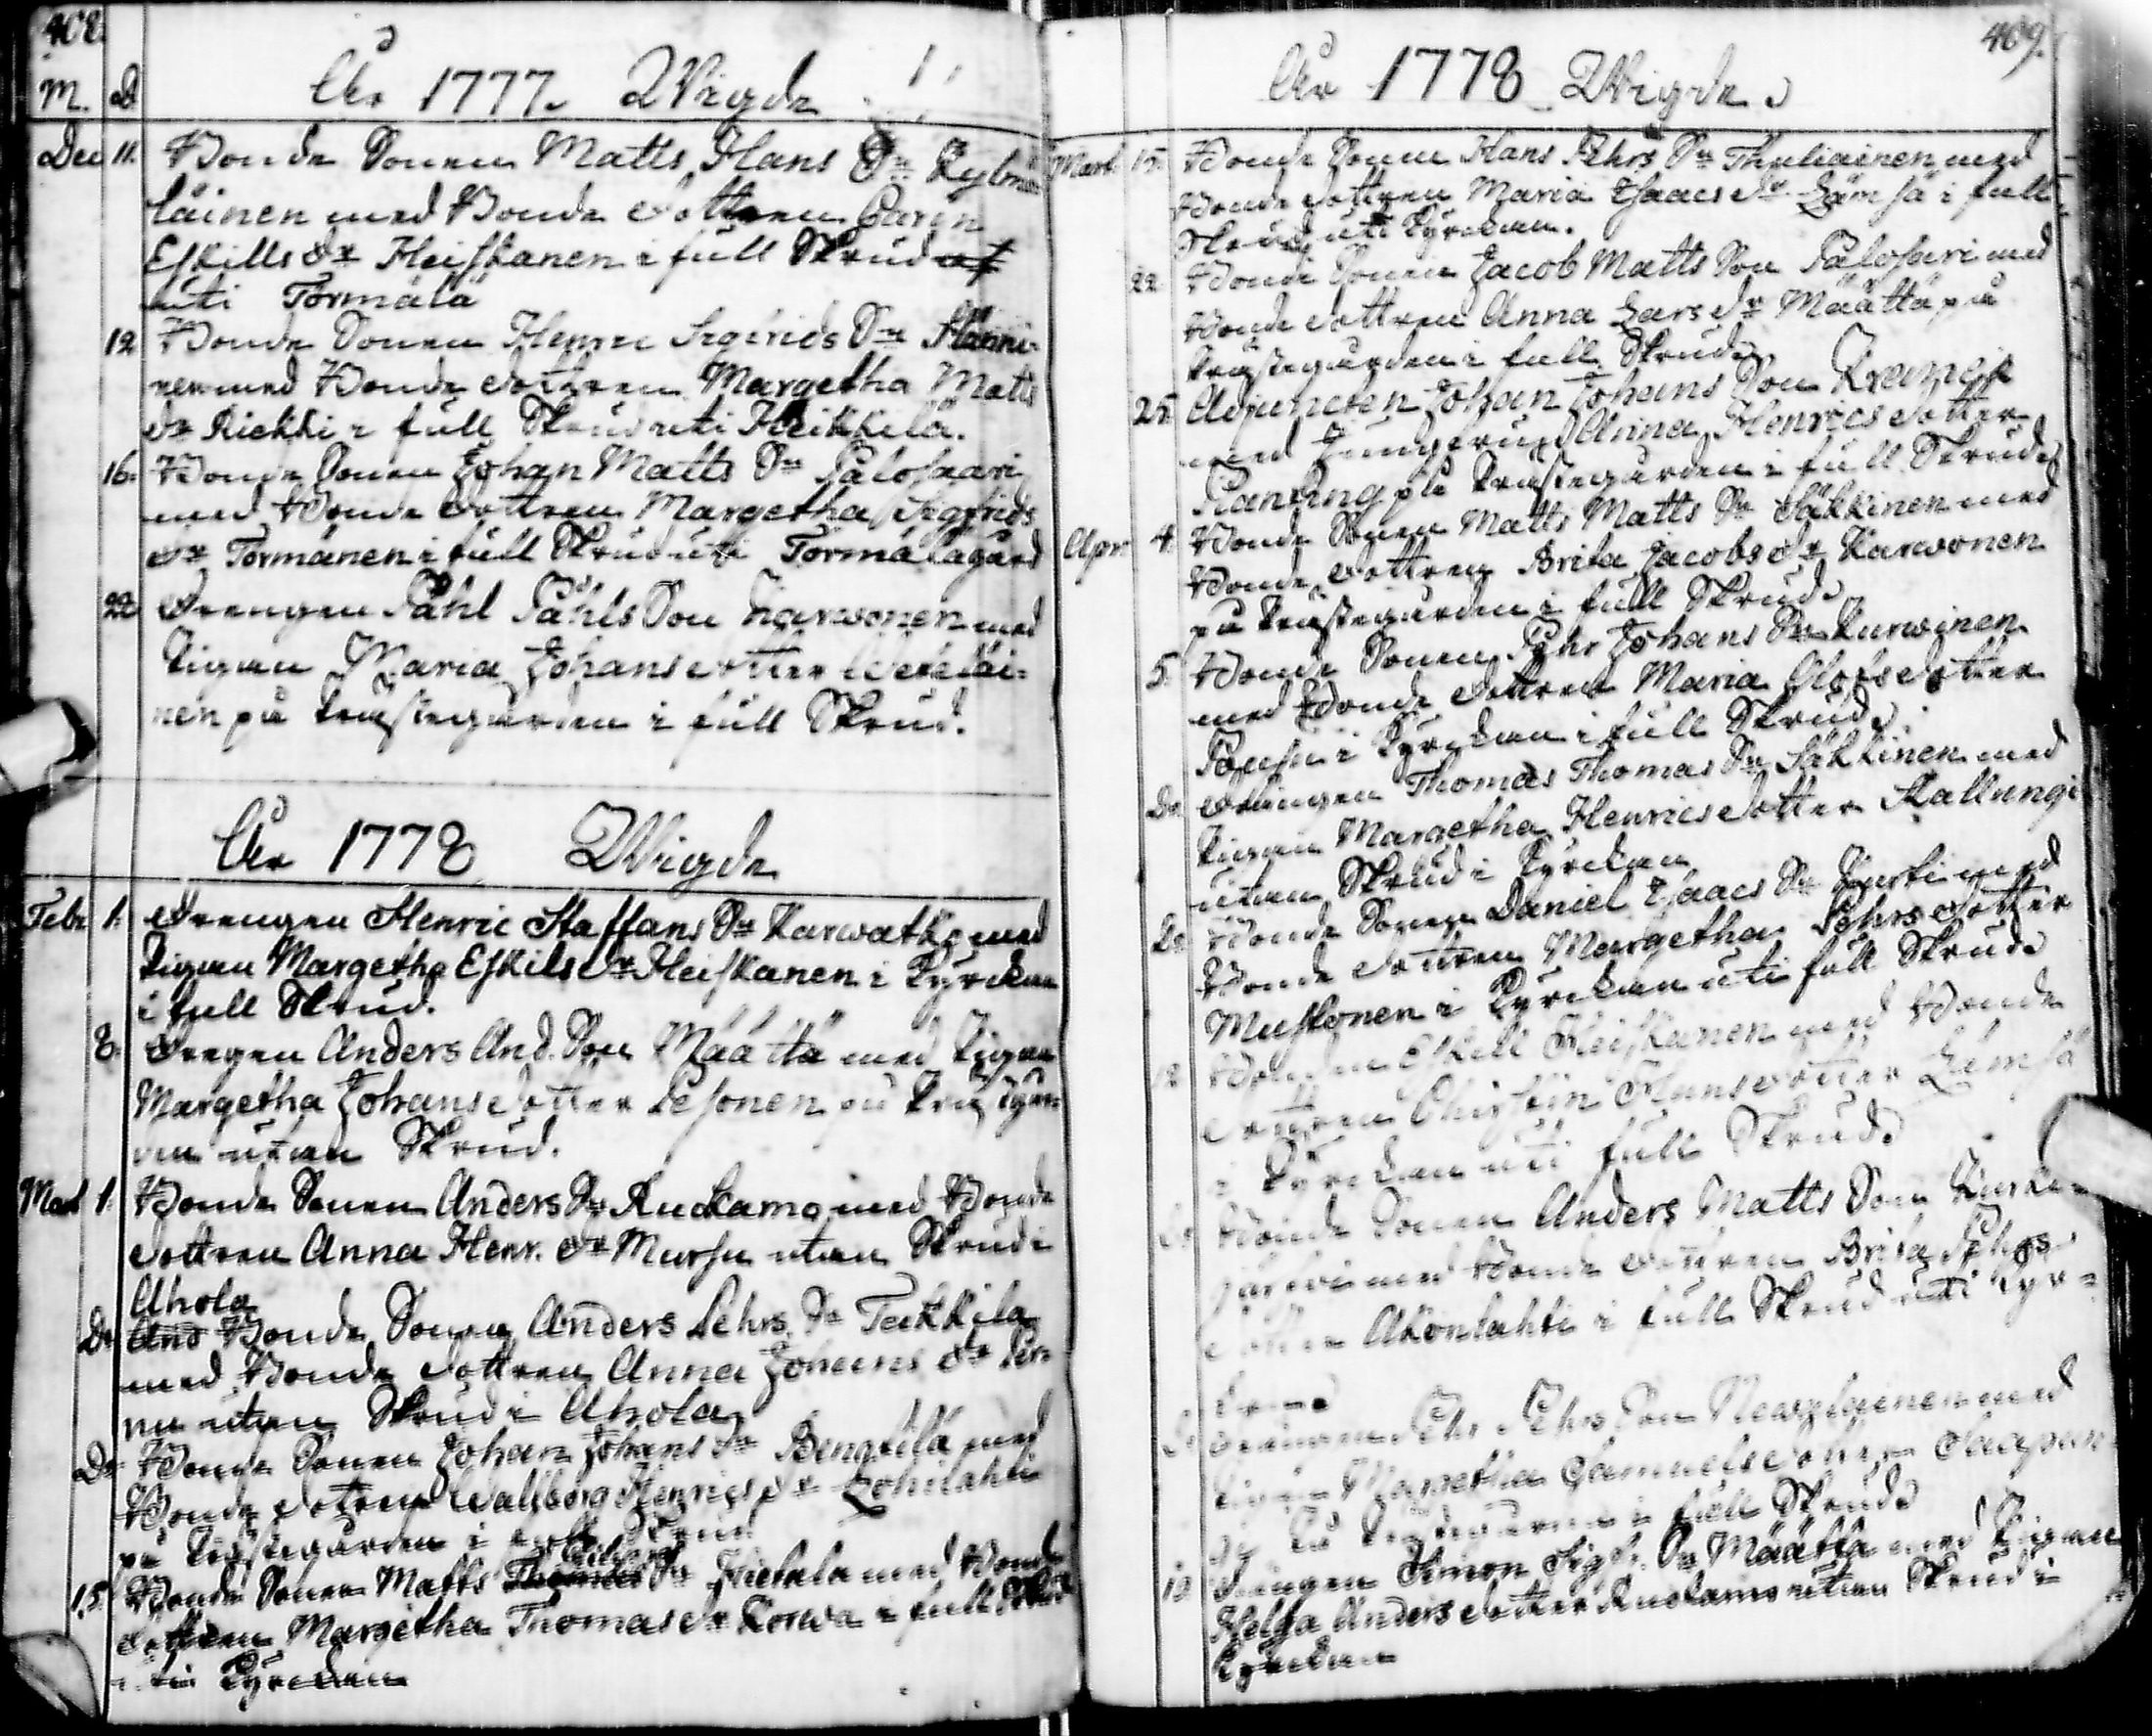 408.
M. D. År 1777. Wigde
Dec 11. Bonde Sonen Matts Hans Sn Kylm
läinen med Bonde dottren Carin
Eskills dr Heiskanen i full Skrud
uti Tormälä
12 Bonde Sonen Henric Sigfrids Sn Hänni
nen med Bonde dottren Margetha Matts
dr Riekki i full Skrud uti Heikkilä.
16. Bonde Sonen Johan Matts Sn Palosaari
med Bonde dottren Margetha Sigfrids
dr Tormänen i full Skrud uti Tormälagård
22 Drengen Påhl Påhls Son Karwonen med
Pigan Maria Johans dotter Weteläi-
nen på Prästegården i full Skrud.
År 1778 Wigde
Febr 1. Drengen Henric Staffans Sn Karwatko med
Pigan Margetha Eskils dr Heiskanen i Kyrckan
i full Skrud.
8. Drengen Anders And. Son Määttä med Pigan
Margetha Johans dotter Lesonen på Prästgår
den utan Skrud.
Mart 1. Bonde Sonen Anders Sn Ruokamo med Bonde
dottren Anna Henr. dr Mursu utan Skrud i
Ahola
Do And Bonde Sonen Anders Pehrs Sn Teikkila
med Bonde dottren Anna Johans dr
nu utan Skrud i Ahola
Do Bonde Sonen Johan Johans Sn Bengtilä med
Bonde dottren Wallborg Henrics dr Lohilahti
på Prästegården i full Skrud
15. Bonde Sonen Matts Thomas Sn Hietala med Bonde
dottren Margetha Thomas dr Korwa i full Skrud
uti Kyrckan
409.
År 1778 Wigde
Mart. 15. Bonde Sonen Hans Pehrs Sn Thuliainen med
Bonde dottren Maria Isaacs dr Lämsä i full
Skrud uti Kyrckan.
22 Bonde Sonen Jacob Matts Son Palosari med
Bonde dottren Anna Lars dr Määttä på
Prästegården i full Skrud
25. Adjuncten Johan Johans Son Kramer
med Jungfrun Anna Henrics dotter
på Prästegården i full Skrud
Apr. 4. Bonde Sonen Matts Matts Sn Säkkinen med
Bonde dottren Brita Jacobs dr Karwonen
på Prästegården i full Skrud
5. Bonde Sonen Pehr Johans Sn Kurwinen
med Bonde dottren Maria Olofs dotter
i Kyrckan i full Skrud
Do Drängen Thomas Thomas Sn Säkkinen med
Pigan Margetha Henrics dotter Stallungi
utan Skrud i Kyrckan
Do Bonde Sonen Daniel Isaacs Sn Kurti med
Bonde dottren Margetha Pehrs dotter
Mustonen i Kyrckan uti full Skrud
12 Bonden Eskill Heiskanen med Bonde
dottren Chirstin Hans dotter Lämsä
i Kyrckan uti full Skrud
Do Bonde Sonen Anders Matts Son Kurki-
järfwi med Bonde dottren Brita Pehrs
dotter Akonlahti i full Skrud uti Kyr-
Drängen Pehr Pehrs Son med
Pigan Margetha Samuels dotter
på Prästegården i full Skrud
Drängen Simon Sigfr. Sn Määttä med Pigan
Helga Anders dotter Ruokamo utan Skrud i
Kyrckan